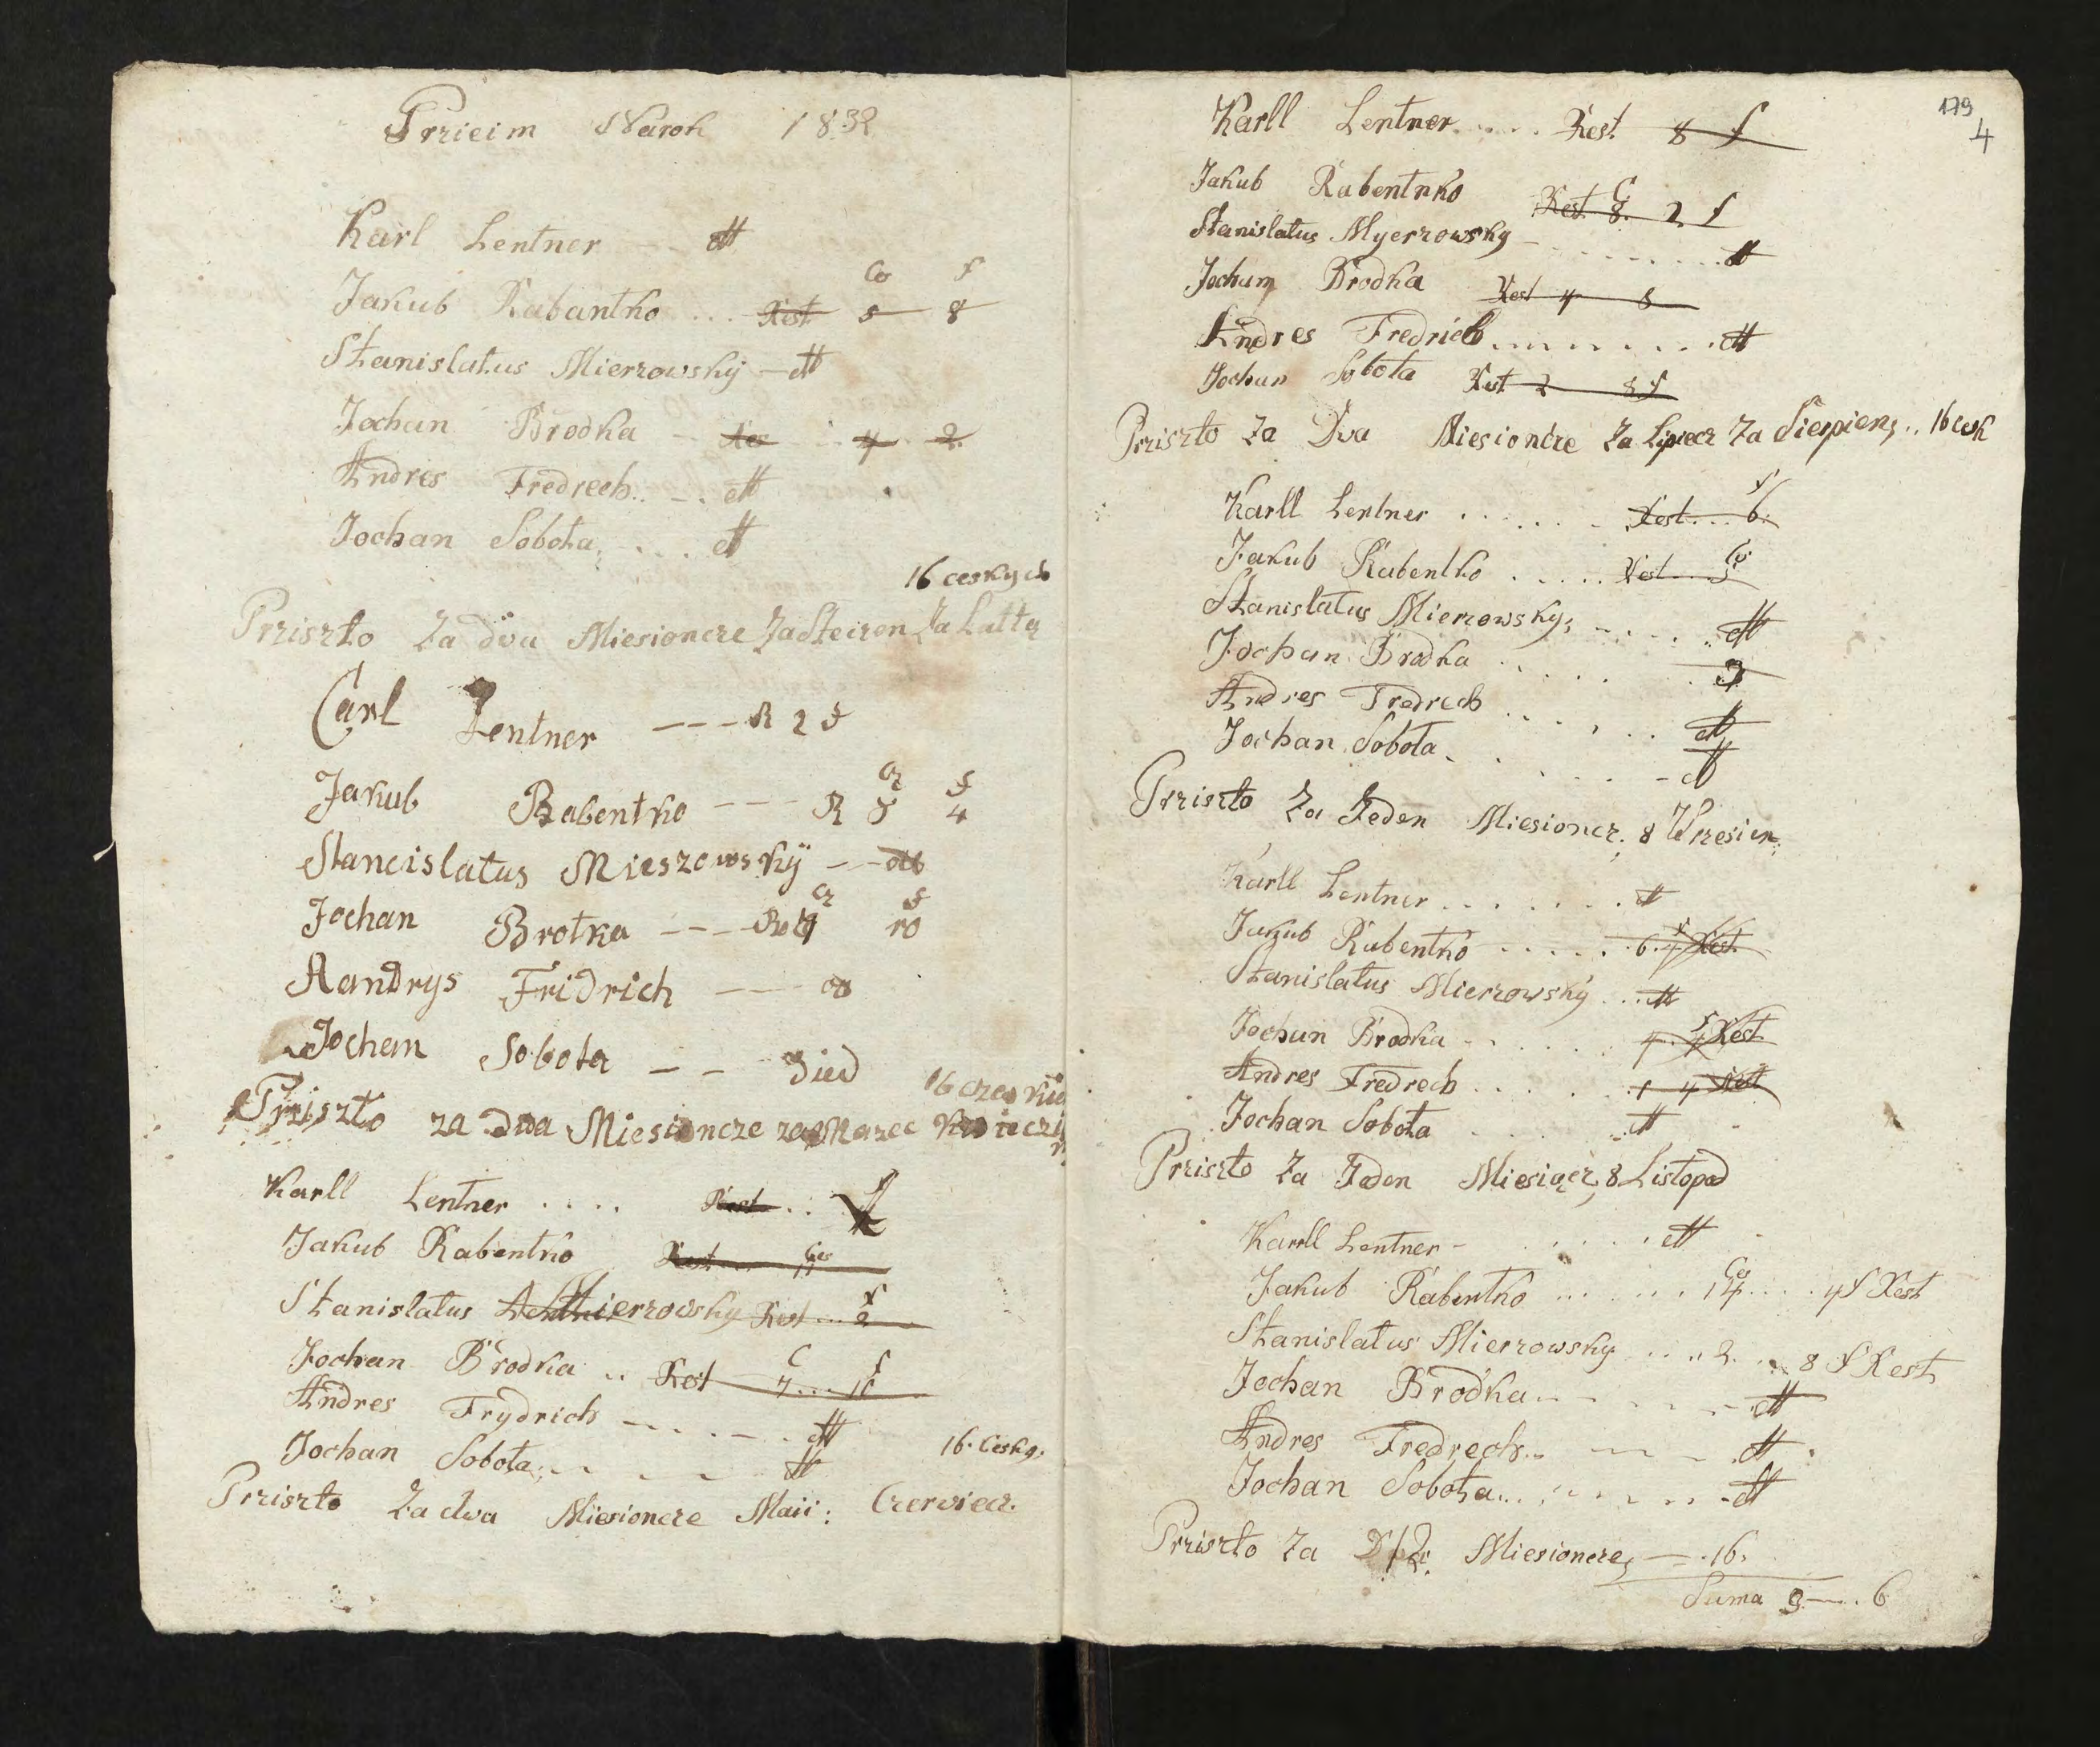 Przieim Naroh 1832
Karl Lentner — dtt
Co f
Jakub Rabantko ... Rest 5 8
Stanislatus Mierzowsky — dtt
Jochan Brodka — Res 4 2
Andres Fredrech .. — . dtt
Jochan Sobota, ... dtt
16 ceskych
Prziszto Za dva Miesioncze Za Steizen Za Latty
Carl Lentner — — — R 2 f
Cz f
Jakub Rabentko — — — R 5 4
Stancislatus Mieszowsky — — dtt
Cz f
Jochan Brotka — — — R 4 10
Aandrys Fridrich — —
Jochem Sobota — —
16
Prziszto za dwa Miesioncze za Marzec
Karll Lentner .... Rest ..
Jakub Rabentko Rest 11
f
Stanislatus Mierzowsky Rest ... 2
C f
Jochan Brodka .. Rest 7 ... 10
Andres Frydrich — .. — . dtt
Jochan Sobota, dtt
16. Cesky.
Prziszto Za dwa Miesioncze Maii: Czerwiecz.
179
4
Karll Lentner ..... Rest 8 f
Jakub Rabentnko Rest 8. 2 f
Stanislatus Myerzowsky — ........ dtt
Jocham Brodka Rest 4 8
Andres Fredrich ......... dtt
Jochan Sobota Rest 2 8 f
Prziszto Za Dva Miesioncze Za Lipiecz Za Sierpien, .. 16 cesk
Karll Lentner ...... Rest ... 6.
Jakub Rabentko ..... Rest ... 5
Stanislatus Mierzowsky; — ..... dtt
Jochan Brodka ..... 3
Andres Fredrech ...... dtt
Jochan Sobota. ...... — dtt
Prziszto Za Jeden Miesioncz. 8 Wrzesien;
Karll Lentner ....... dtt
Jakub Rabentko ...... 6. 4 Rest
Stanislatus Mierzowsky ... dtt
Jochan Brodka — ..... 4. 4 Rest
Andres Fredrech ...... 1 4 Rest
Jochan Sobota ..... dtt
Prziszto Za Jeden Miesiącz, 8 Listopad
Karll Lentner — ..... dtt
Jakub Rabentko ...... 14 .... 4 f Rest
Stanislatus Mierzowsky .... 2. .. 8 f Rest
Jochan Brodka .. — . — . — dtt
Andres Fredrech .. — — . dtt
Jochan Sobota ... ...... — dtt
Prziszto Za Miesioncze, — .16.
Suma 9 — . 6